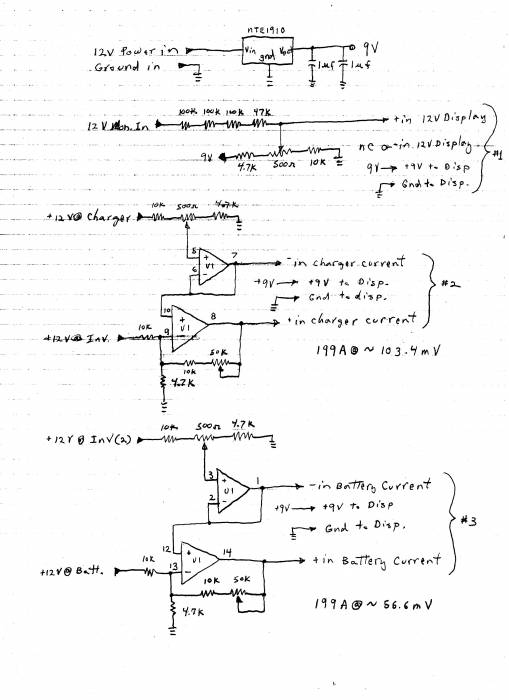 NTE1910
12V Power in
Vin
Vout
gnd
9V
Ground in
1μf
1μf
100K 100K 100K 47K
12V Mon. In
+in 12V Display
nc
-in 12V Display
#1
9V
4.7K
500Ω
10K
9V → +9V to Disp
Gnd to Disp.
+12V@ Charger
10K
500Ω
4.7K
5
+
7
6
-
U1
-in charger current
+9V → +9V to Disp.
Gnd to disp.
#2
10
+
8
+in charger current
9
-
U1
10K
+12V@ Inv.
199A@ ~ 103.4mV
10K
50K
4.7K
+12V@ Inv(2)
10K
500Ω
4.7K
3
+
1
2
-
U1
-in Battery Current
+9V → +9V to Disp
Gnd to Disp.
#3
12
+
14
+in Battery Current
13
-
U1
10K
+12V@ Batt.
10K
50K
4.7K
199A@ ~ 56.6mV